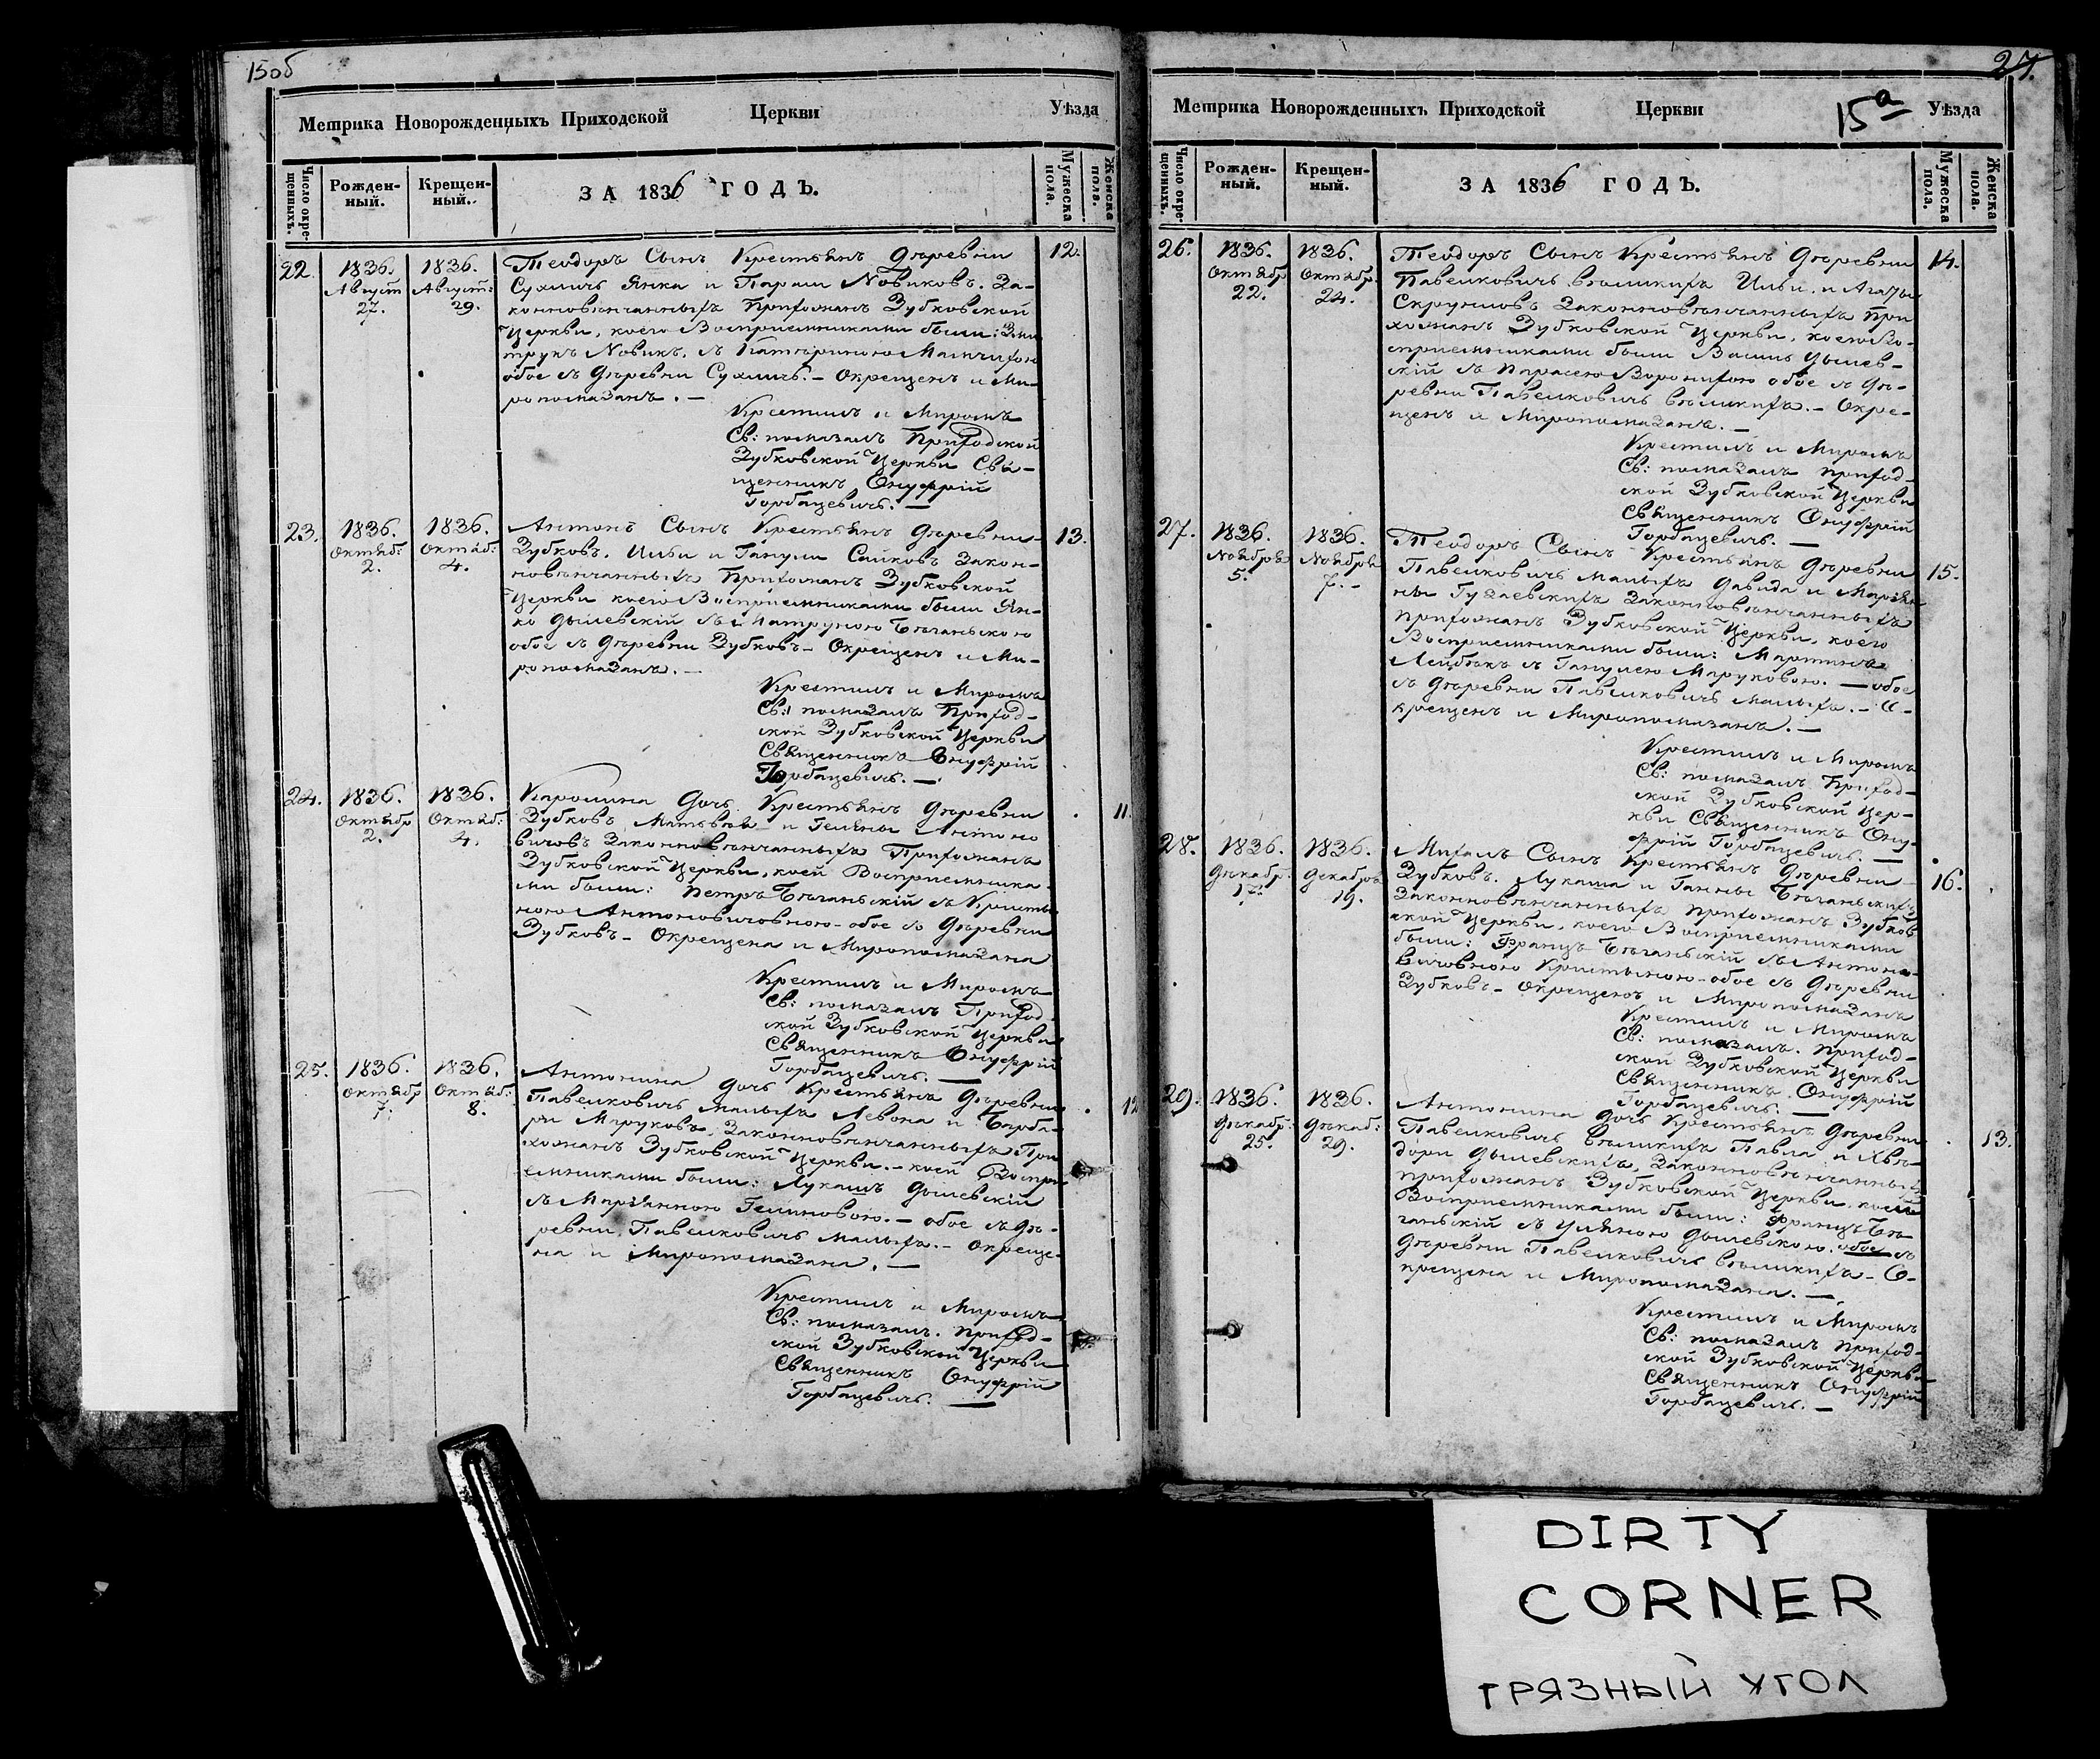 15об
Метрика Новорожденныхъ Приходской Церкви Уѣзда
Число окре-
щенныхъ.
Рожден-
ный.
Крещен-
ный.
ЗА 1836 ГОДЪ.
Мужеска
пола.
Женска
пола.
22.
1836.
Август
27.
1836.
Август:
29.
Теодоръ Сынъ Крестьянъ Деревни
Сухличъ Янка и Параси Новиковъ. За-
конновѣнчанныхъ Прихожанъ Зубковской
Церкви, коего Воспріемниками были:
Новикъ. съ Катериною
обое съ Деревни Сухличъ. – Окрещенъ и Ми-
ропомазанъ. –
Крестилъ и Миромъ
Св: помазалъ Приходской
Зубковской Церкви Свя-
щенникъ Онуфрій
Горбацевичъ. –
12.
23.
1836.
Октяб:
2.
1836.
Октяб:
4.
Антонъ Сынъ Крестьянъ Деревни
Зубковъ. Ильи и Ганули Сайковъ Закон-
новѣнчанныхъ Прихожанъ Зубковской
Церкви коего Воспріемниками были Ян-
ко Дылевскій съ Матруною Бѣганьскою
обое съ Деревни Зубковъ – Окрещенъ и Ми-
ропомазанъ. –
Крестилъ и Миромъ
Св: помазалъ Приход-
ской Зубковской Церкви
Священникъ Онуфрій
Горбацевичъ. –
13.
24.
1836.
Октябр
2.
1836.
Октяб:
4.
Каролина Дочь Крестьянъ Деревни
Зубковъ Матвѣя и Гелены Антоно
вичовъ Законновѣнчанныхъ Прихожанъ
Зубковской Церкви, коей Воспріемника-
ми были: Петръ Бѣганьскій съ Кристы-
ною Антоновичовною – обое съ Деревни
Зубковъ – Окрещена и Миропомазана
Крестилъ и Миромъ
Св: помазалъ Приход-
ской Зубковской Церкви
Священникъ Онуфрій
Горбацевичъ. –
11.
25.
1836.
Октябр
7.
1836.
Октяб:
8.
Антонина Дочь Крестьянъ Деревни
Павелковичъ малыхъ Левона и Барба-
ри Маруковъ, Законновѣнчанныхъ При
хожанъ Зубковской Церкви. – коей Воспрі
емниками были: Лукашъ Дылевскій
съ Маріянною Гелиновою. – обое съ Де-
ревни Павелковичъ малыхъ. – Окреще-
на и Миропомазана. –
Крестилъ и Миромъ
Св: помазалъ. Приход-
ской Зубковской Церкви
Священникъ Онуфрій
Горбацевичъ. –
12
27.
15а
Метрика Новорожденныхъ Приходской Церкви Уѣзда
Число окре-
щенныхъ.
Рожден-
ный.
Крещен-
ный.
ЗА 1836 ГОДЪ.
Мужеска
пола.
Женска
пола.
26.
1836.
Октябр
22.
1836.
Октябр.
24.
Теодоръ Сынъ Крестьянъ Деревни
Павелковичъ Великихъ Ильи и Агаты
Законновѣнчанныхъ При
хожанъ Зубковской Церкви, коего Во-
спріемниками были Дылев-
скій съ Парасею Воронихою обое съ Де-
ревни Павелковичъ великихъ. – Окре-
щенъ и Миропомазанъ. –
Крестилъ и Миромъ
Св: помазалъ Приход-
ской Зубковской Церкви
Священникъ Онуфрій
Горбацевичъ. –
14.
27.
1836.
Ноября
5.
1836.
Ноября
7. –
Теодоръ Сынъ Крестьянъ Деревни
Павелковичъ Малыхъ Давида и Марьян
ны Законновѣнчанныхъ
Прихожанъ Зубковской Церкви, коего
Воспріемниками были: Мартинъ
съ Ганулею Маруковою. – обое
съ Деревни Павелковичъ Малыхъ. – О-
крещенъ и Миропомазанъ. –
Крестилъ и Миромъ
Св: помазалъ Приход-
ской Зубковской Цер-
кви Священникъ Ону-
фрій Горбацевичъ. –
15.
28.
1836.
Декабр:
17.
1836.
Декабря
19.
Михалъ Сынъ Крестьянъ Деревни
Зубковъ. Лукаша и Ганны Бѣганьскихъ
Законновѣнчанныхъ Прихожанъ Зубков
ской Церкви, коего Воспріемниками
были: Францъ Бѣганьскій съ Антоно-
вичовною Кристыною – обое съ Деревни
Зубковъ – Окрещенъ и Миропомазанъ
Крестилъ и Миромъ
Св: помазалъ. Приход-
ской Зубковской Церкви
Священникъ Онуфрій
Горбацевичъ. –
16.
29.
1836.
Декабр:
25.
1836.
Декаб:
29.
Антонина Дочь Крестьянъ Деревни
Павелковичъ Великихъ Павла и Хве-
дори Дылевскихъ, Законновѣнчанныхъ
Прихожанъ Зубковской Церкви, коей
Воспріемниками были: Францъ Бѣ-
ганьскій съ Ульяною Дылевскою. обое съ
Деревни Павелковичъ Великихъ – О-
крещена и Миропомазана. –
Крестилъ и Миромъ
Св: помазалъ Приход-
ской Зубковской Церкви
Священникъ Онуфрій
Горбацевичъ. –
13.
DIRTY
CORNER
ГРЯЗНЫЙ УГОЛ